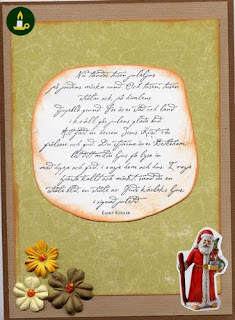 Nu tändas tusen juleljus
på jordens mörka rund. Och tusen, tusen
stråla ock på himlens
djupblå grund. över stad och land
i kväll går julens glada bud
Att född är Herren Jesus Krist, vår
frälsare och Gud. Du stjärna över Betlehem,
låt ditt milda ljus få lysa in
med hopp och frid i varje hem och hus. I varje
hjärta kallt och mörkt, sänd du en
stråle blid, en stråle av Guds kärleks ljus
i signad juletid.
Emmy Köhler